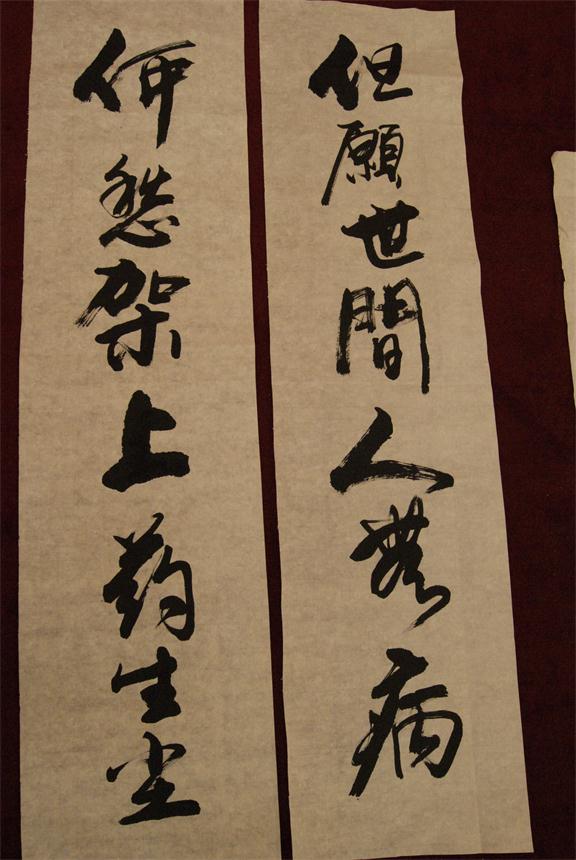 但願世間人無病
何愁架上药生尘